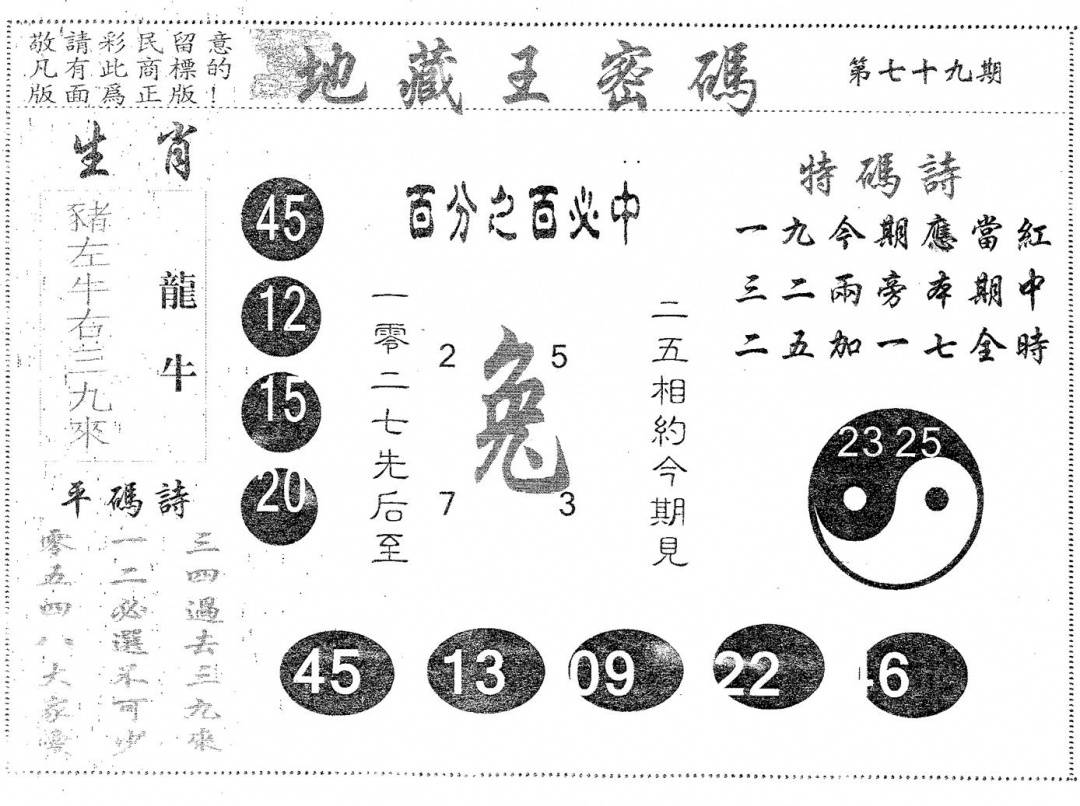 敬請彩民留意
凡有此商標的
版面爲正版！
地藏王密碼
第七十九期
生肖
豬左牛右三九來
龍牛
45
12
15
20
百分之百必中
一零二七先后至
2
5
兔
7
3
二五相約今期見
特碼詩
一九今期應當紅
三二兩旁本期中
二五加一七全時
23 25
平碼詩
三四過去三九來
一二必選不可少
零五四八大家
45
13
09
22
46